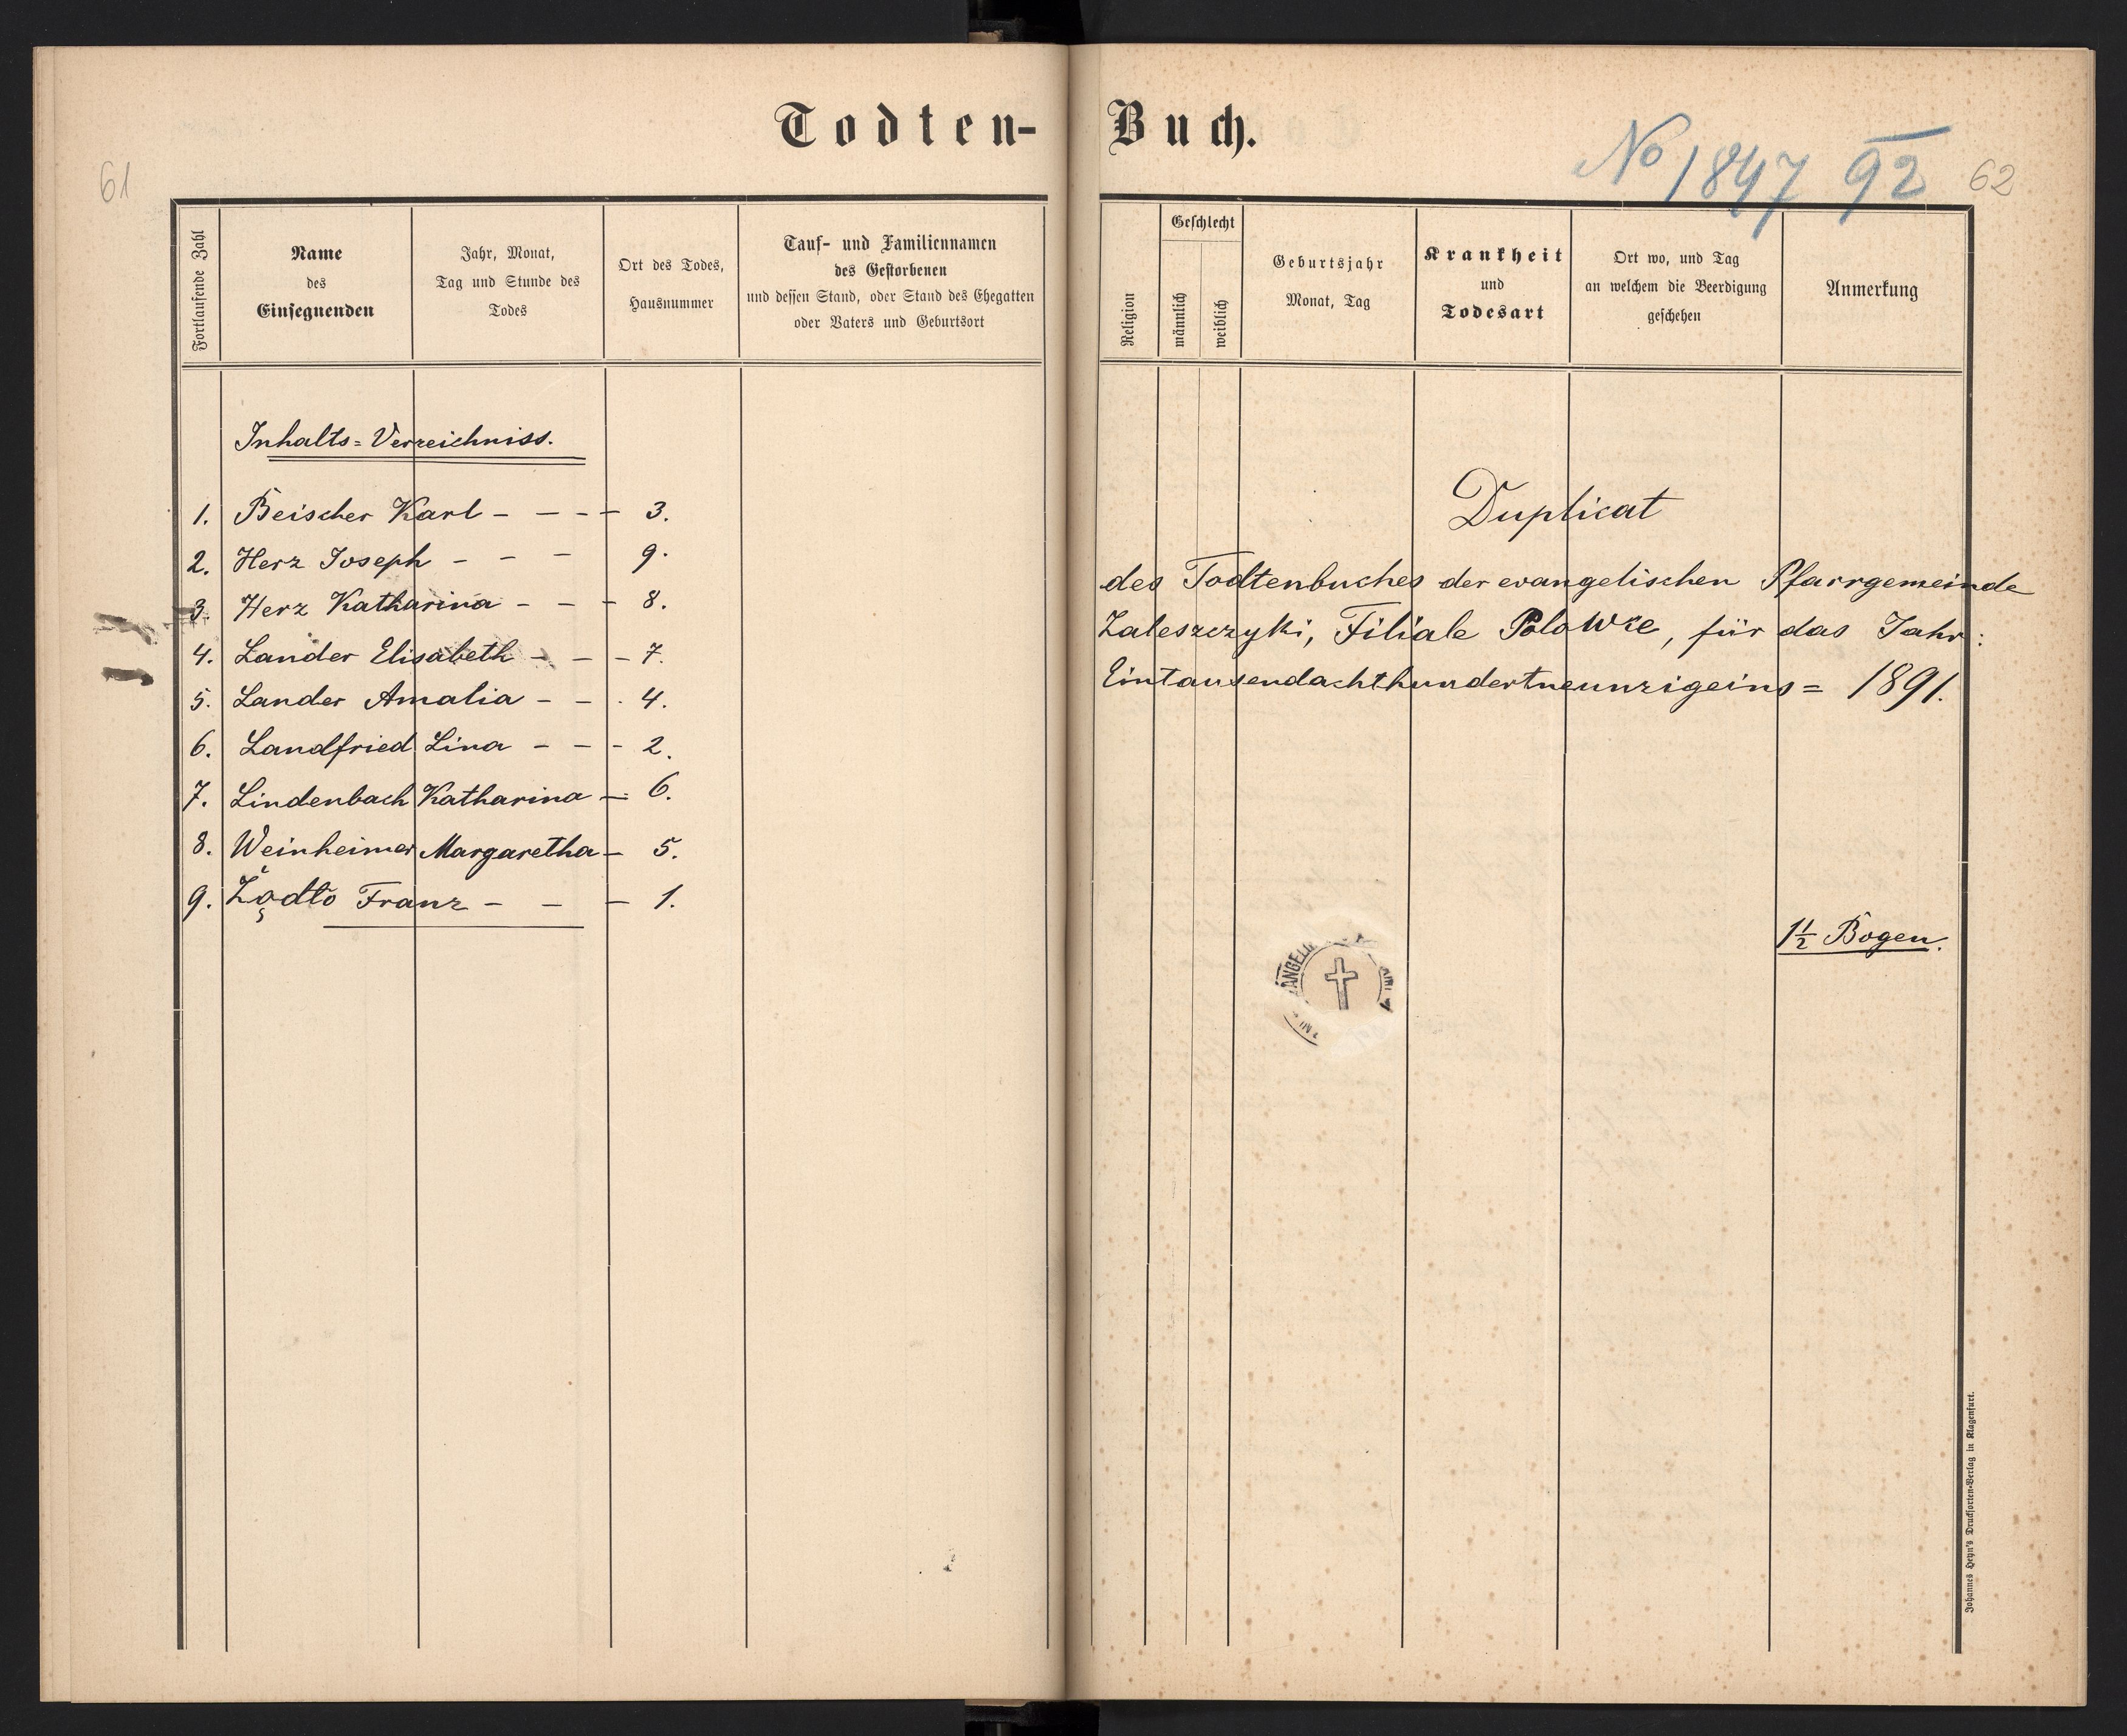 Todten-Buch.
61
No 1847 92
62
Fortlaufende Zahl
Name
des
Einsegnenden
Jahr, Monat,
Tag und Stunde des
Todes
Ort des Todes,
Hausnummer
Tauf- und Familiennamen
des Gestorbenen
und dessen Stand, oder Stand des Ehegatten
oder Vaters und Geburtsort
Inhalts=Verzeichniss.
1. Beischer Karl - - - - 3.
2. Herz Joseph - - - 9.
3. Herz Katharina - - - 8.
4. Lander Elisabeth - - - 7.
5. Lander Amalia - - . 4.
6. Landfried Lina - - - 2.
7. Lindenbach Katharina - 6.
8. Weinheimer Margaretha - 5.
9. Franz - - - 1.
Religion
Geschlecht
männlich
weiblich
Geburtsjahr
Monat, Tag
Krankheit
und
Todesart
Ort wo, und Tag
an welchem die Beerdigung
geschehen
Anmerkung
Duplicat
des Todtenbuches der evangelischen Pfarrgemeinde
Zaleszczyki, Filiale für das Jahr:
Eintausendachthundertneunzigeins = 1891.
1½ Bogen.
Johannes Heyn's Drucksorten-Verlag in Klagenfurt.